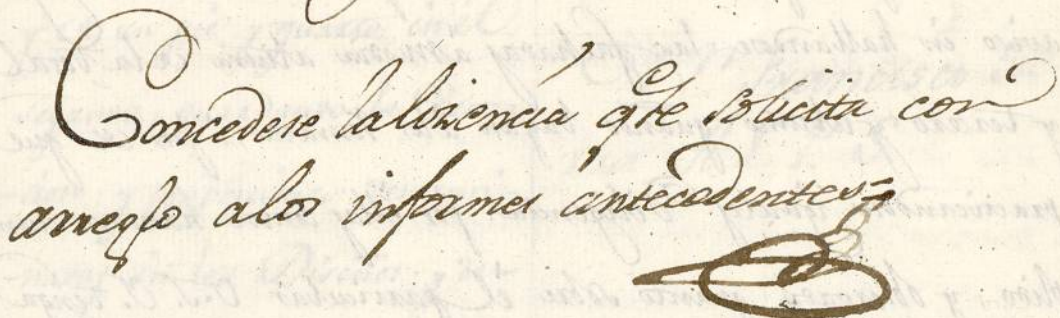 Concedese la lizencia qe se solicita con
arreglo a los informes antecedentes=